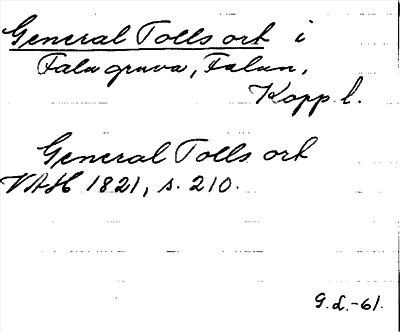 General Tolls ort i
Falu gruva, Falun,
Kopp l.
General Tolls ort
VAH 1821, s. 210.
G.L.-61.